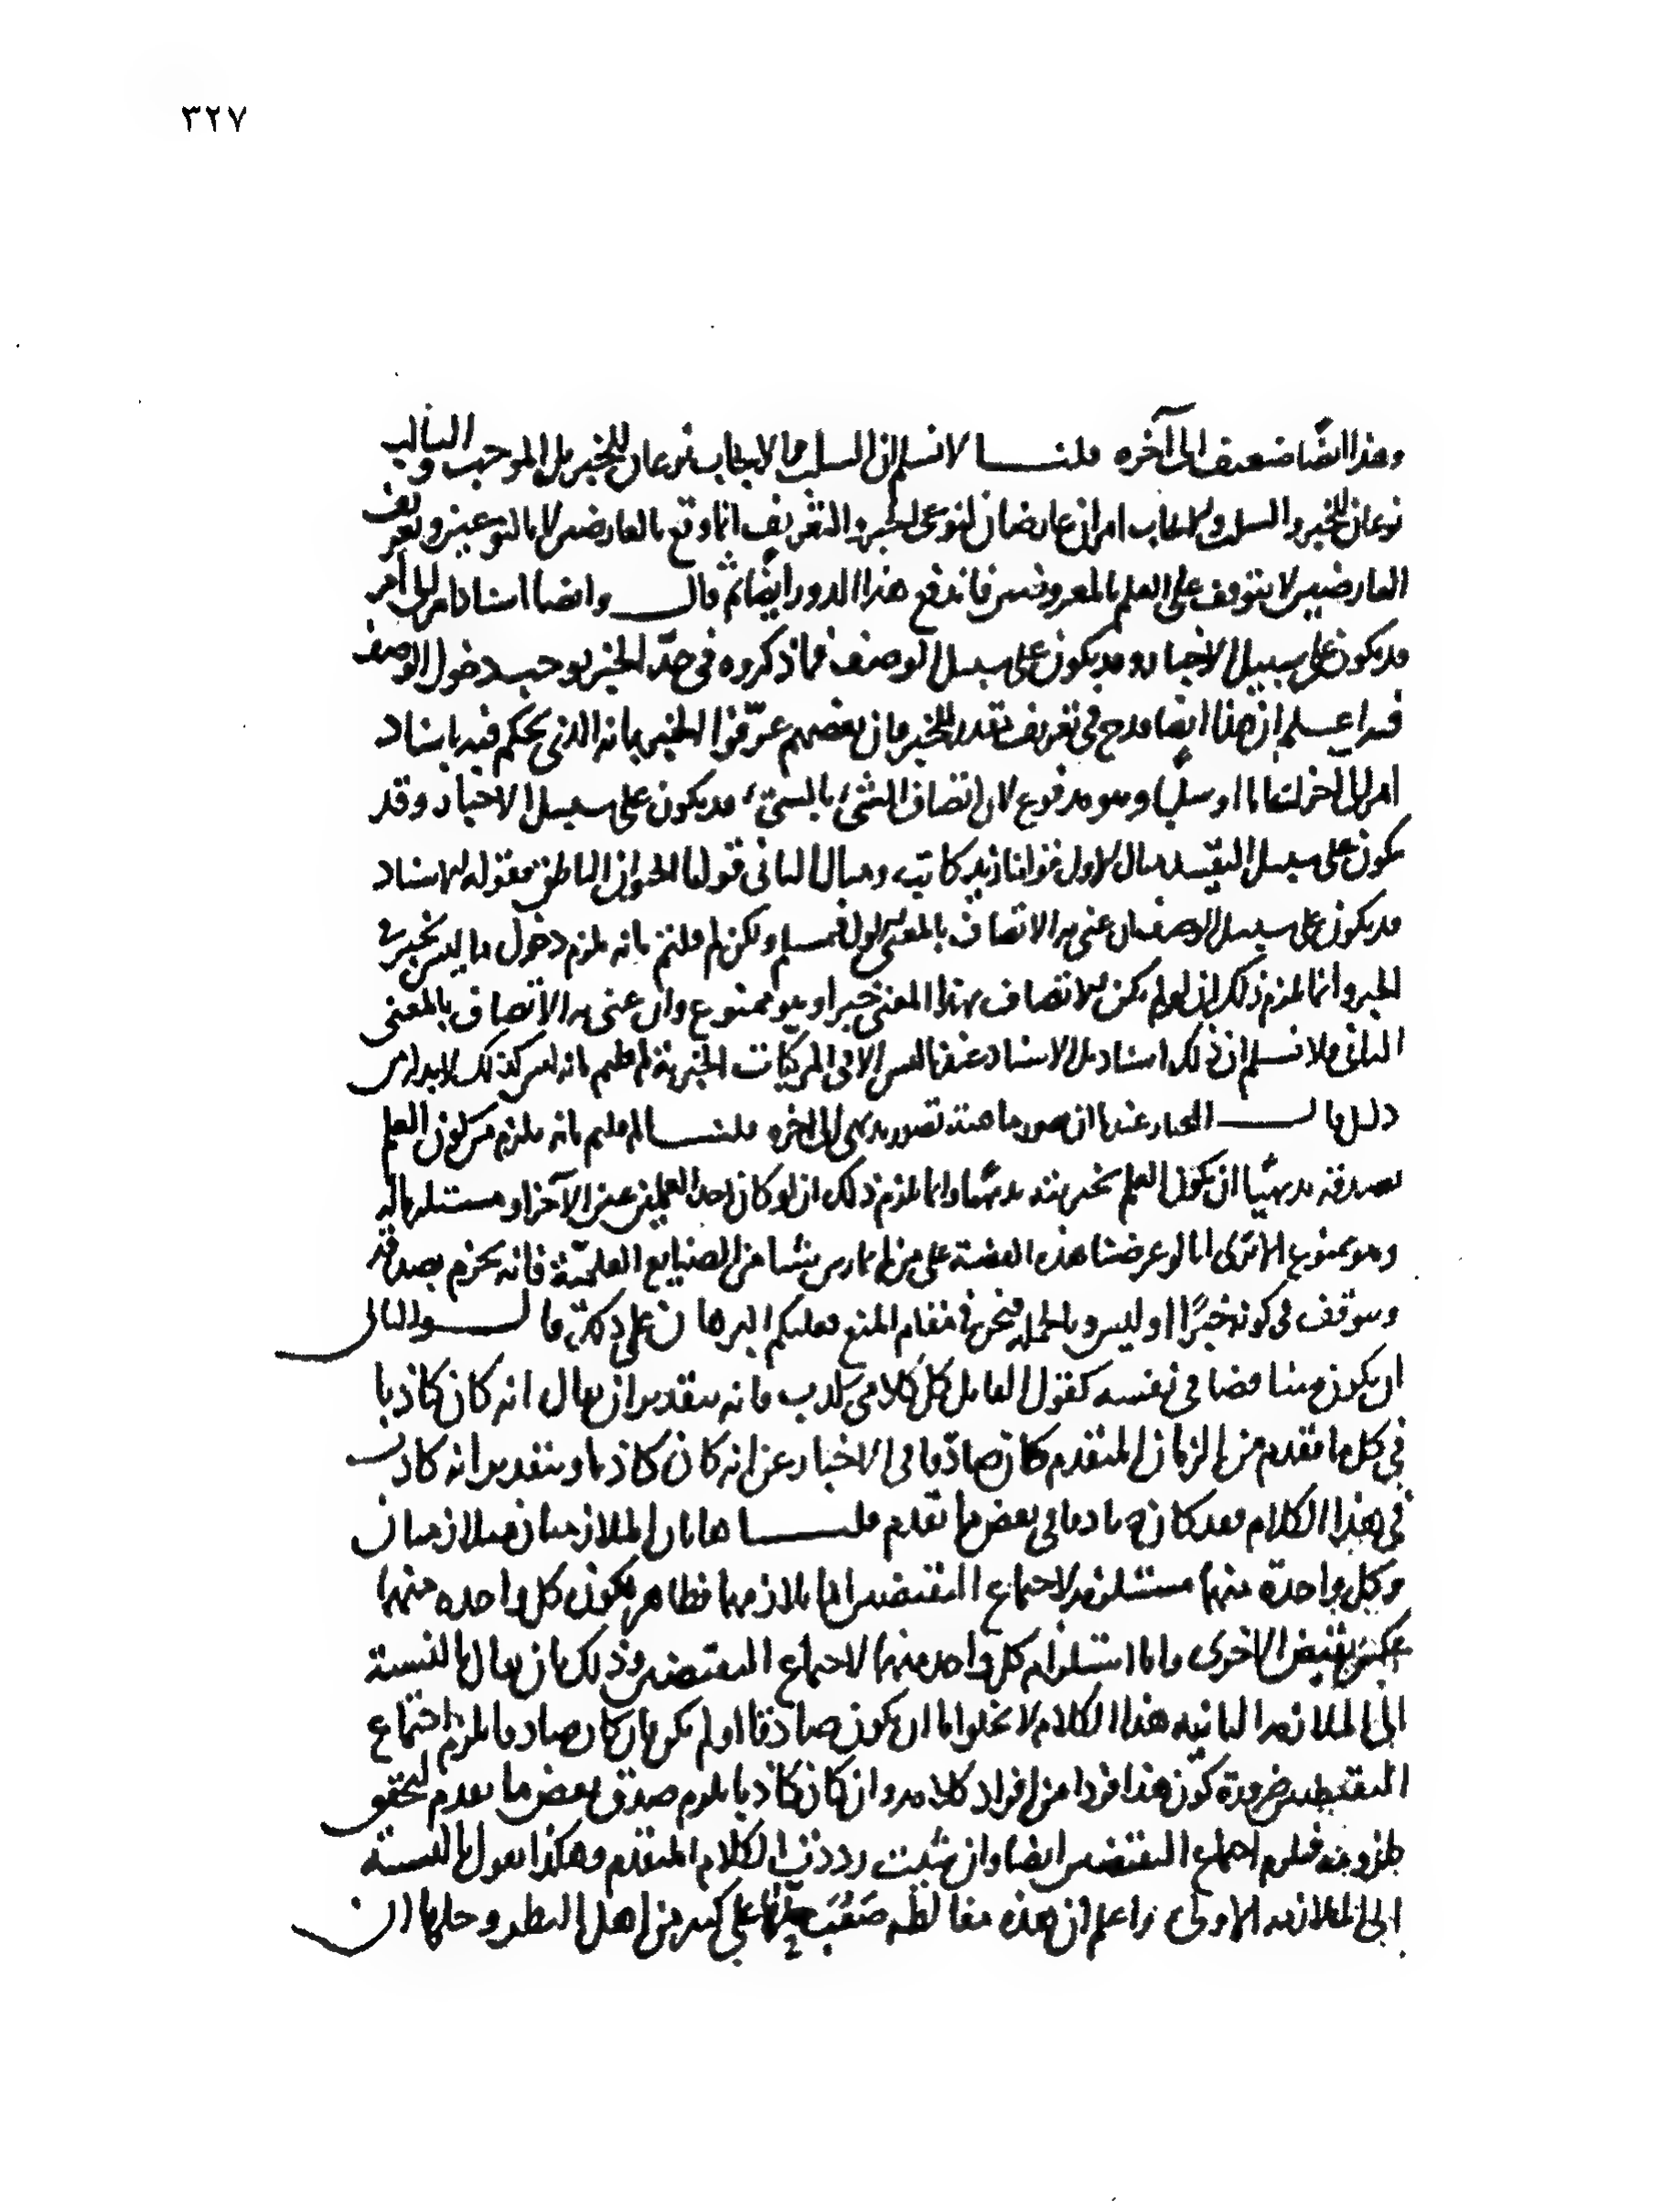 ٣٢٧
وهذا ايضا ضعيف الى آخره قلنا لا نسلم ان السلب والايجاب نوعان للخبر بل الموجب والسالب
نوعان للخبر والسلب والايجاب امران عارضان لنوعى الخبر والتعريف انما وقع بالعارضين لا بالنوعين وتعريف
العارضين لا يتوقف على العلم بالمعروضين فاندفع هذا الدور ايضا ثم قال وايضا اسناد امر الى امر
قد يكون على سبيل الاخبار وقد يكون على سبيل الوصف فما ذكروه فى حد الخبر يوجب دخول الوصف
فيه اعلم ان هذا ايضا قدح فى تعريف للخبر فان بعضهم عرفوا الخبر بانه الذى يحكم فيه باسناد
امر الى آخر اثباتا او سلبا وهو مدفوع لان اتصاف الشىء بالشىء قد يكون على سبيل الاخبار وقد
يكون على سبيل التقييد مثال الاول قولنا زيد كاتب ومثال الثانى قولنا الحيوان الناطق فقوله الاسناد
قد يكون على سبيل الوصف ان عنى به الاتصاف بالمعنى الاول فمسلم ولكن لم قلتم بانه يلزم دخول ما ليس بخبر فى
الخبر وانما يلزم ذلك ان لو لم يكن الاتصاف بهذا المعنى خبرا وهو ممنوع وان عنى به الاتصاف بالمعنى
الثانى فلا نسلم ان ذلك اسناد بل الاسناد عندنا ليس الا فى المركبات الخبرية لم قلتم بانه ليس كذلك لا بد له من
دليل قال المختار عندنا ان تصور ماهيته تصور بديهى الى آخره قلنا لم قلتم بانه يلزم من كون العلم
بصدقه بديهيا ان يكون العلم بخبريته بديهيا وانما يلزم ذلك ان لو كان احد العلمين عين الآخر او مستلزما له
وهو ممنوع الا ترى انا لو عرضنا هذه القضية على من لم يمارس شيئا من الصنايع العلمية فانه يجزم بصدقه
ويتوقف فى كونه خبرا او ليس وبالجملة فنحن فى مقام المنع فعليكم البرهان على ذلك قال والثانى
ان يكون مناقضا فى نفسه كقول القايل كل كلامى كذب فانه بتقدير ان يقال انه كان كاذبا
فى كل ما تقدم من الزمان المتقدم كان صادقا فى الاخبار عن انه كان كاذبا وبتقدير انه كاذب
فى هذا الكلام فقد كان صادقا فى بعض ما تقدم قلنا هاتان الملازمتان متلازمتان
وكل واحدة منهما مستلزمة لاجتماع النقيضين اما تلازمهما فظاهر لكون كل واحده منهما
عكس نقيض الاخرى واما استلزام كل واحد منهما لاجتماع النقيضين وذلك بان يقال بالنسبة
الى الملازمه الثانيه هذا الكلام لا يخلوا اما ان يكون صادقا او لم يكن فان كان صادقا يلزم اجتماع
النقيضين ضرورة كون هذا فردا من افراد كلامه وان كان كاذبا يلزم صدق بعض ما تقدم لتحقق
ملزومه فيلزم اجتماع النقيضين ايضا وان شئت رددت فى الكلام المتقدم وهكذا يقول بالنسبة
الى الملازمه الاولى واعلم ان هذه مغالطه صعب حلها على كثير من اهل النظر وحلها ان